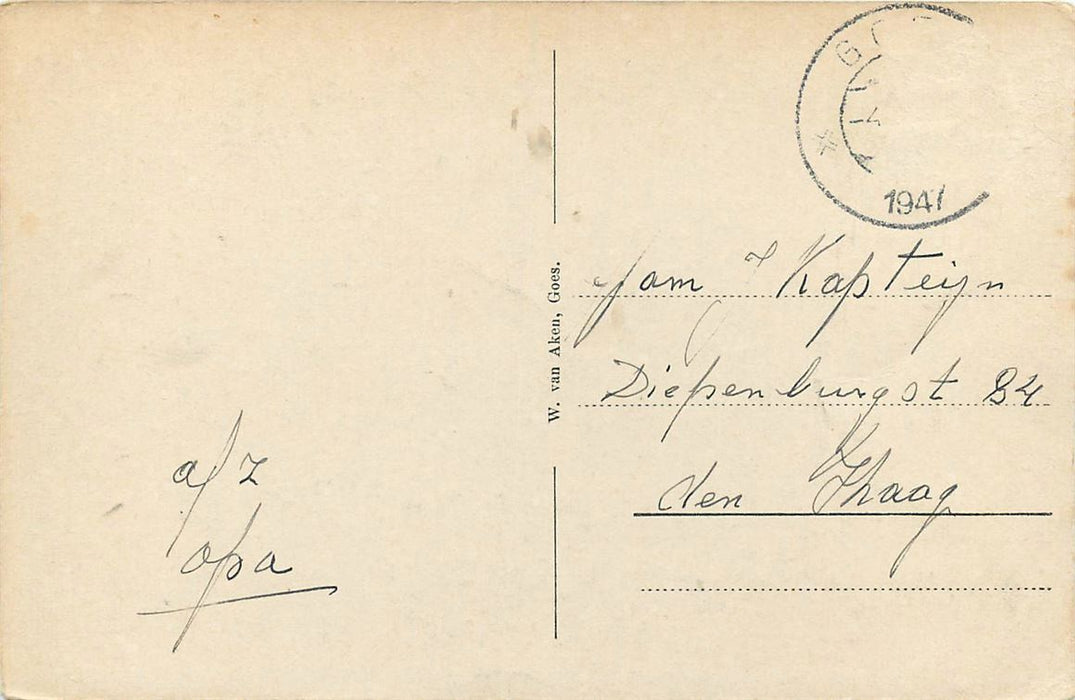 a/z
opa
W. van Aken, Goes.
1947
fam J Kapteijn
Diepenburgst 84
den Haag